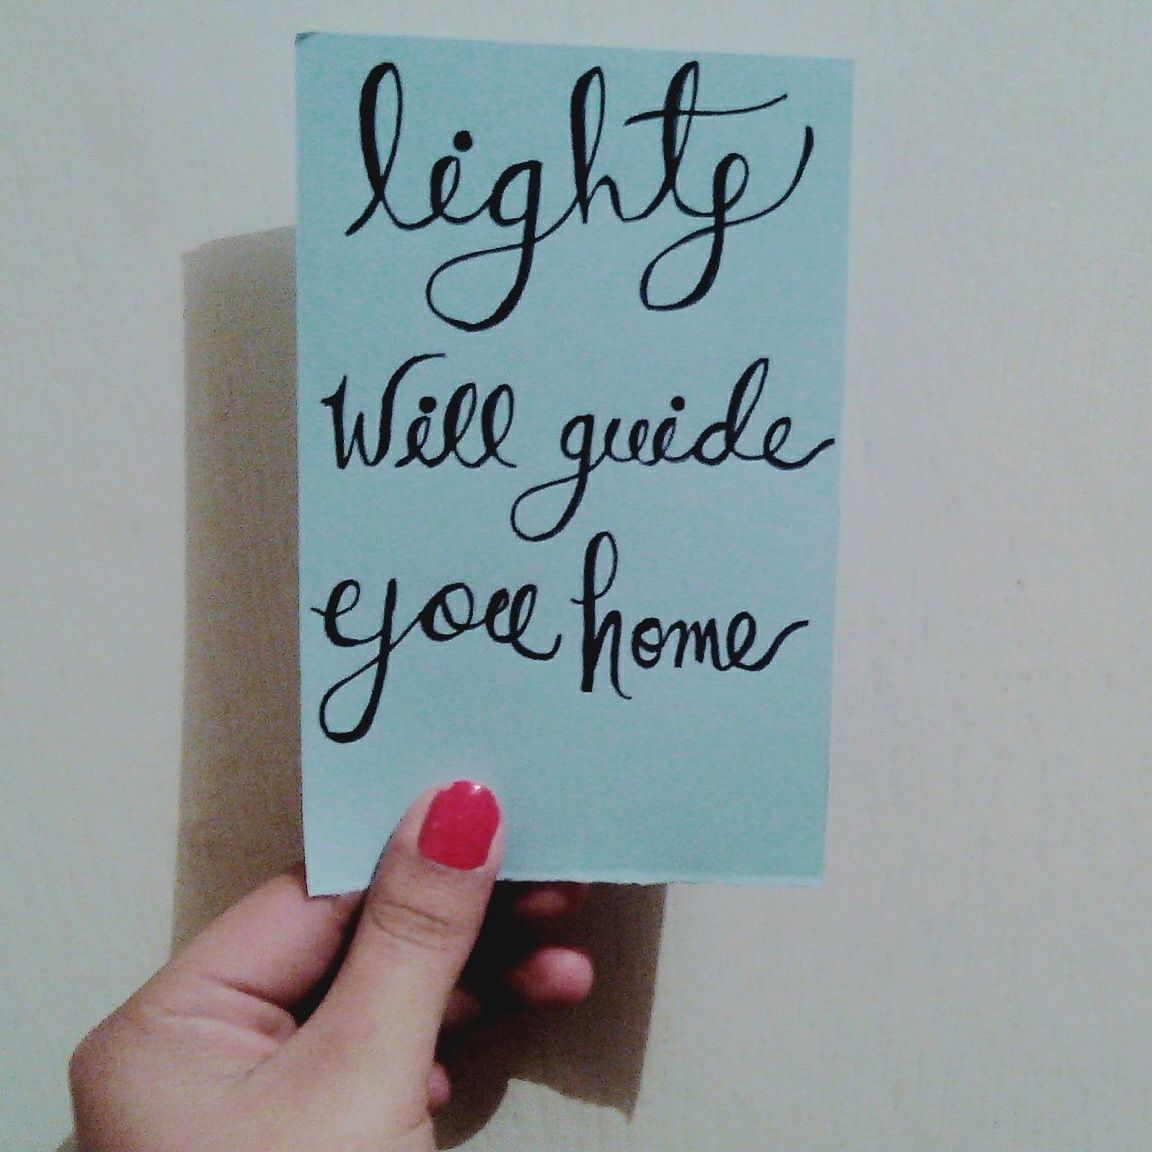 lights
Will guide
you home